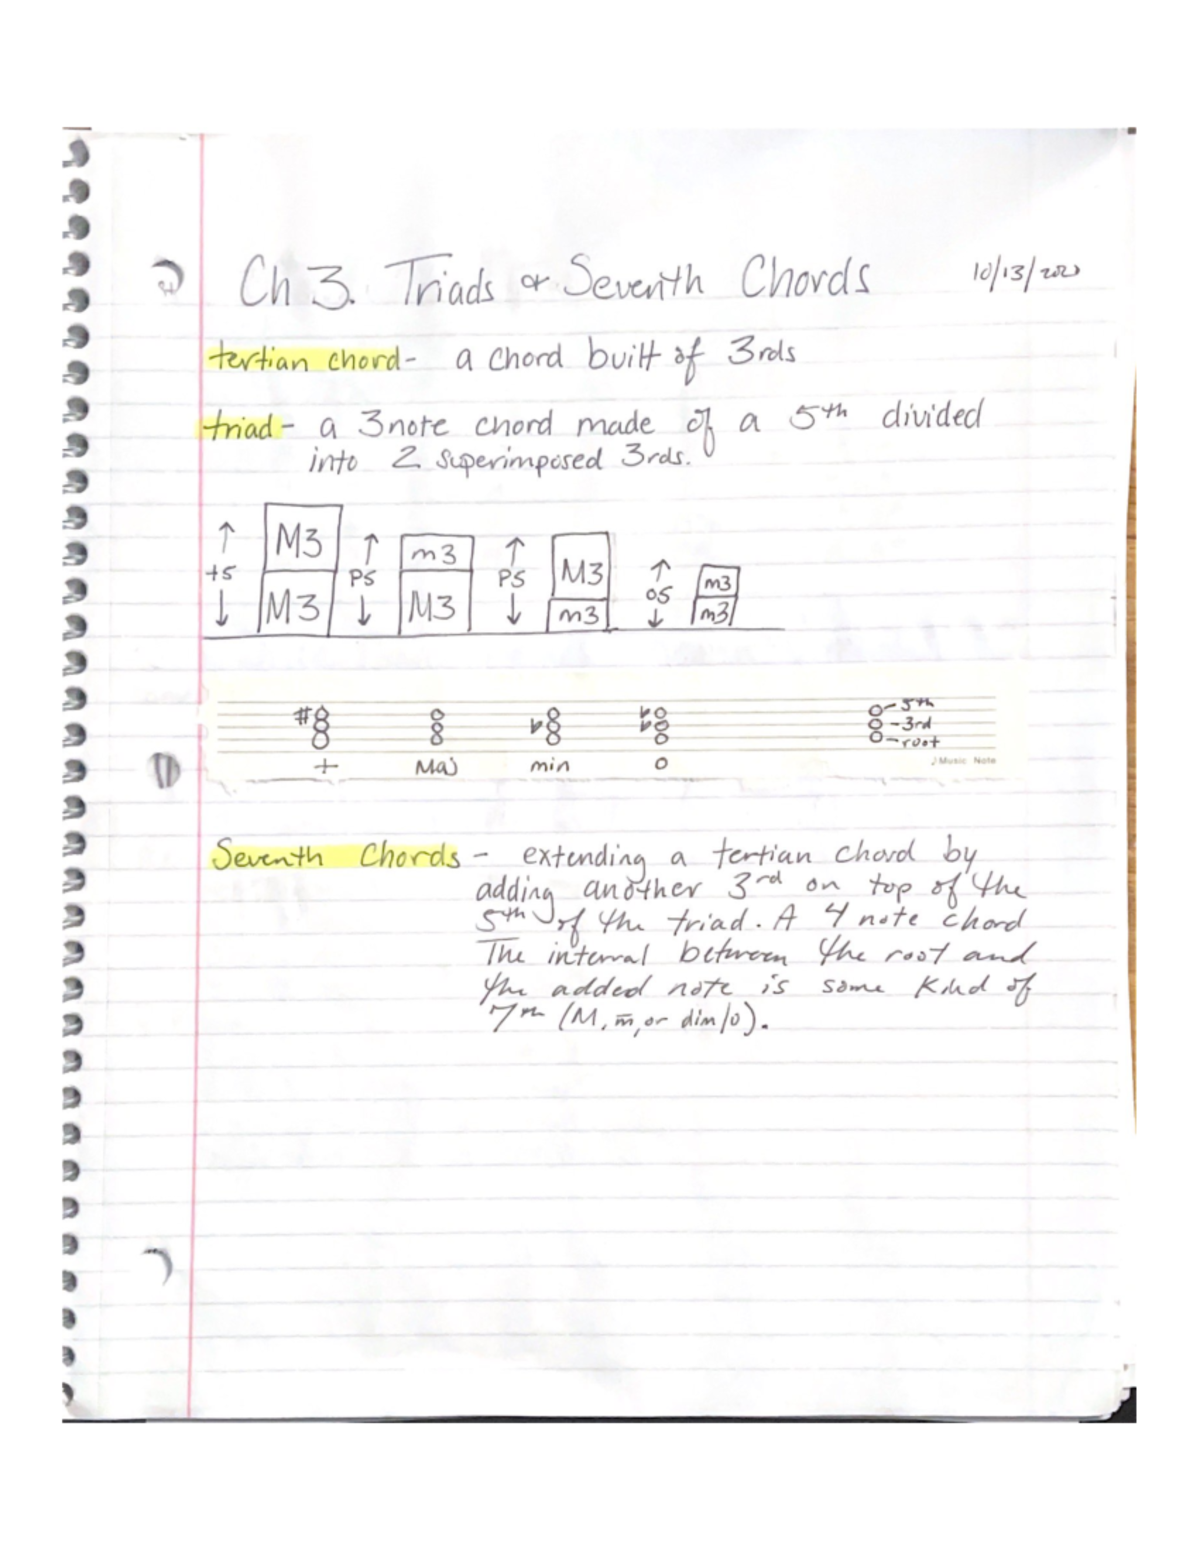 Ch 3. Triads & Seventh Chords 10/13/2020
tertian chord- a chord built of 3rds
triad- a 3note chord made of a 5th divided
into 2 superimposed 3rds.
↑ M3 ↑ m3 ↑ M3 ↑ m3
+5 P5 P5 o5
↓ M3 ↓ M3 ↓ m3 ↓ m3
# b b b -5th
-3rd
-root
+ Maj min o
♪ Music Note
Seventh Chords - extending a tertian chord by
adding another 3rd on top of the
5th of the triad. A 4 note chord
The interval between the root and
the added note is some kind of
7th (M, m, or dim/o).